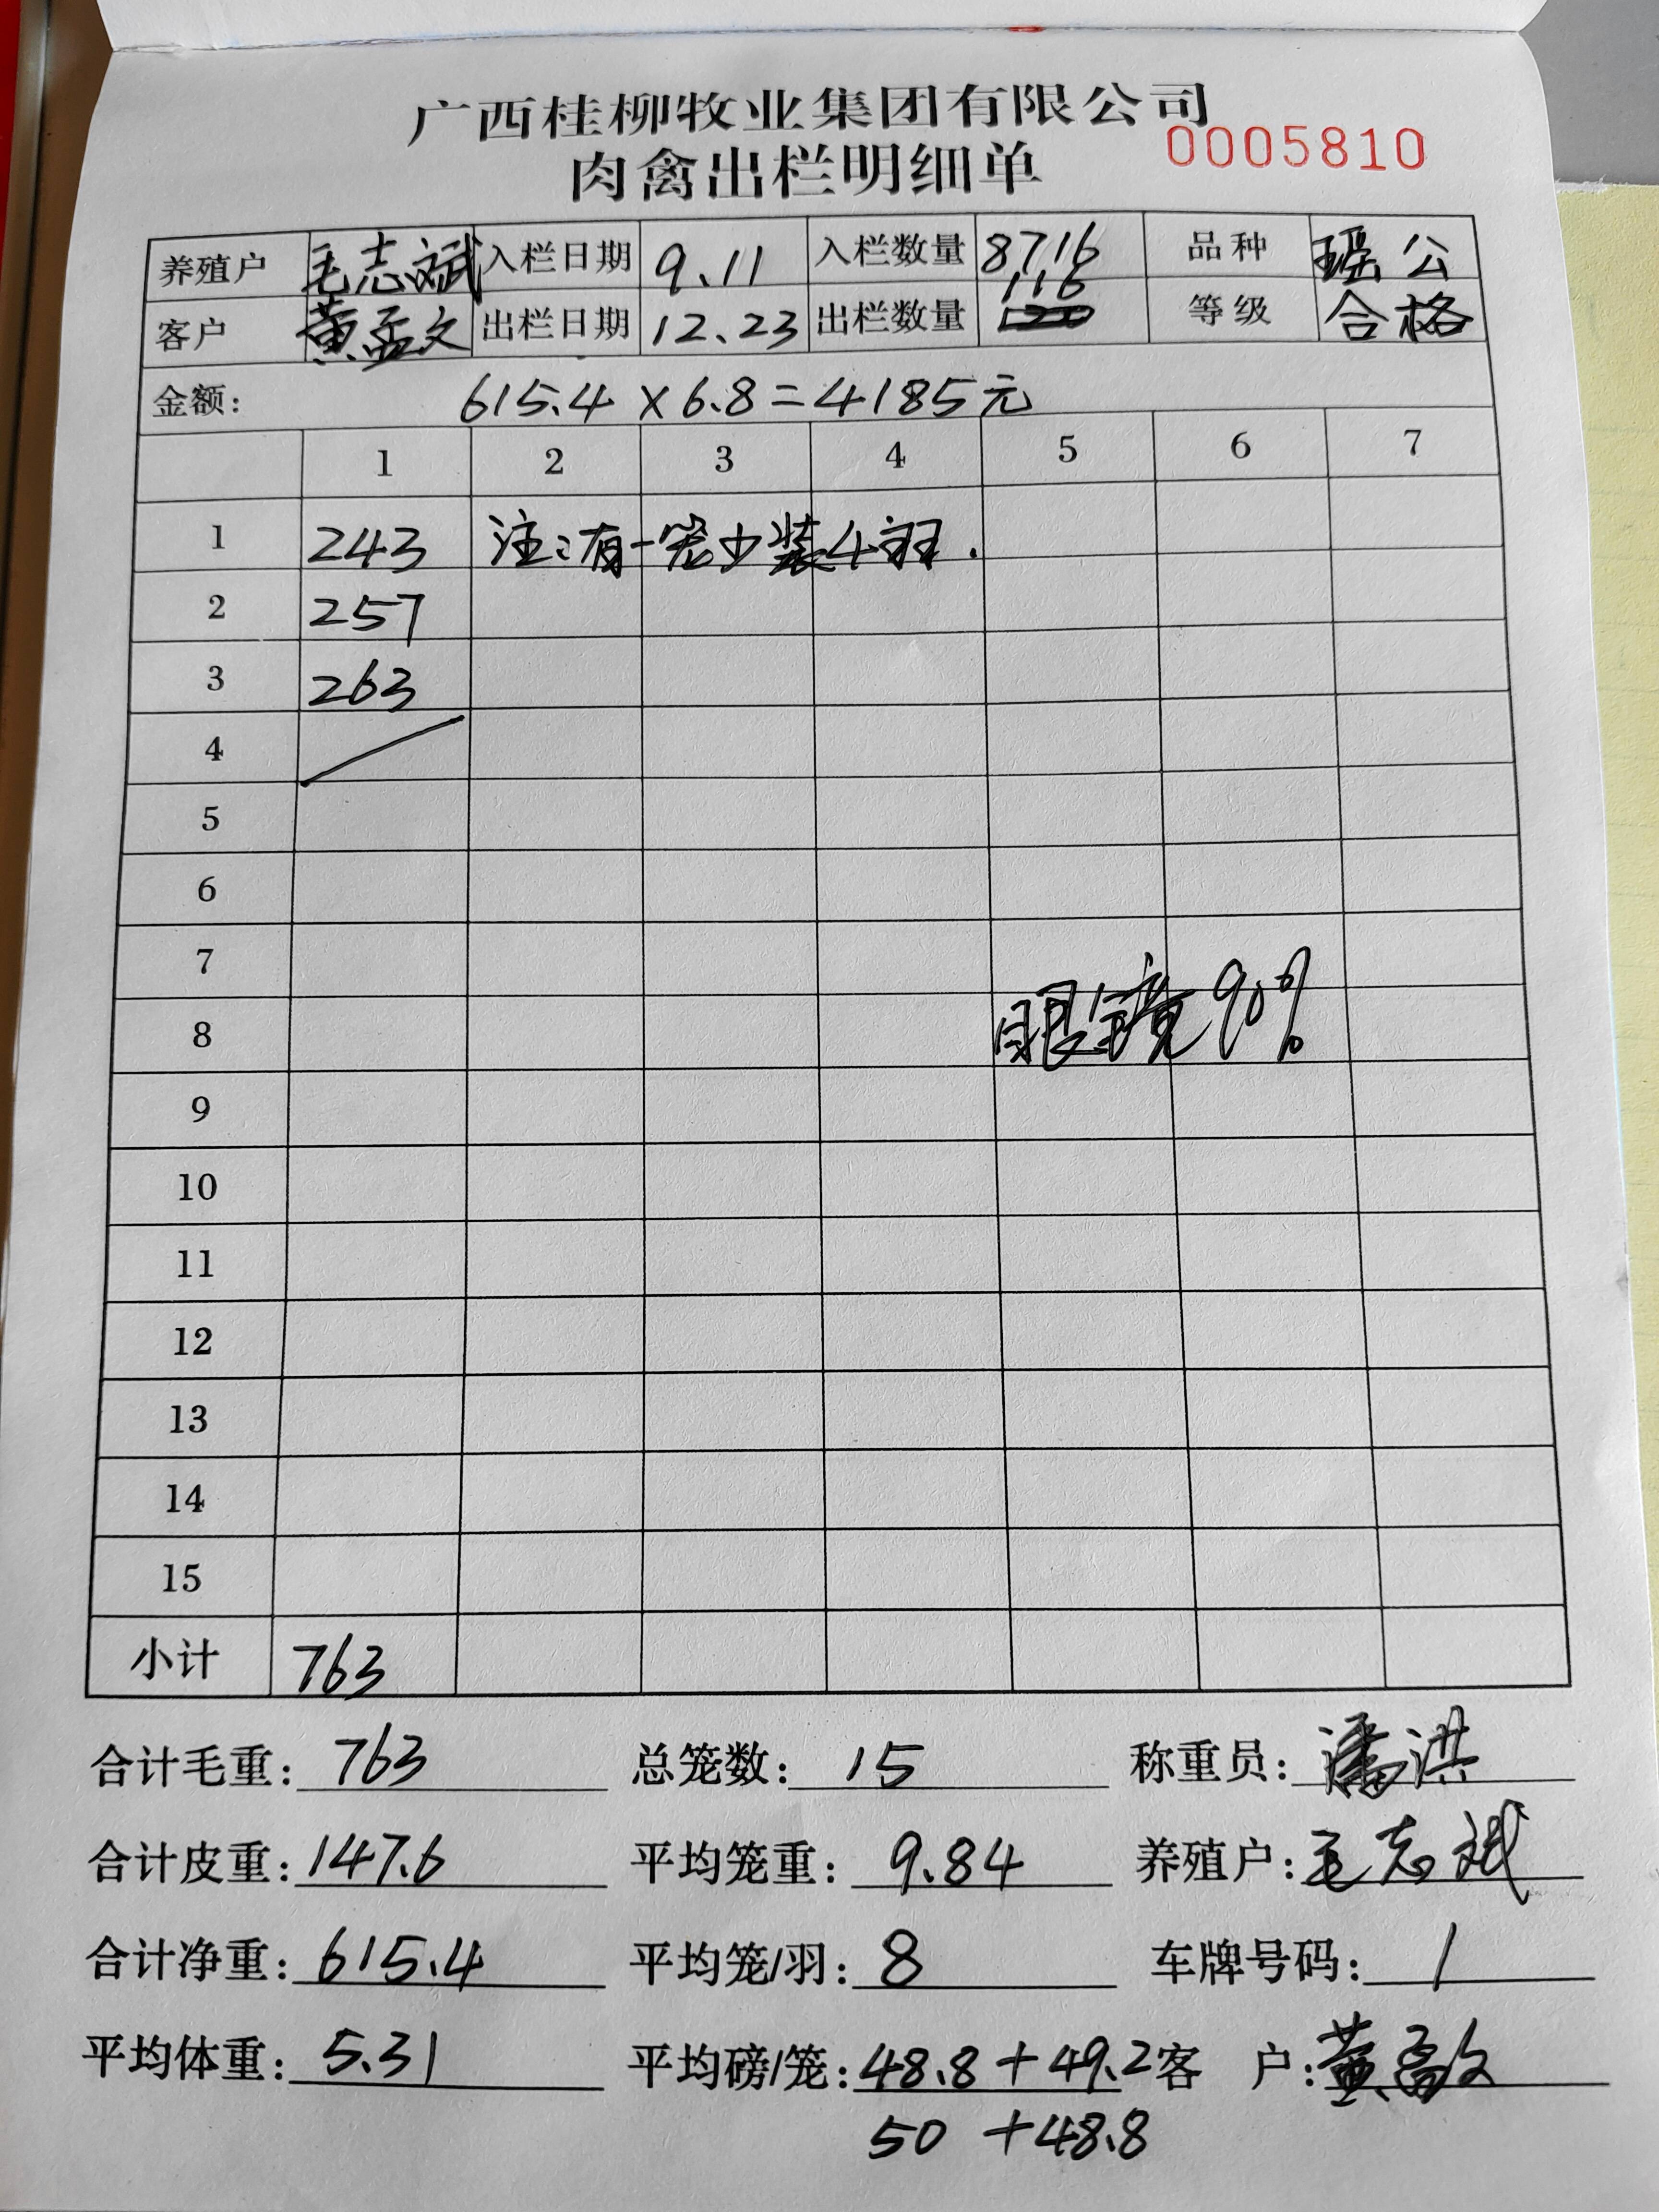 广西桂柳牧业集团有限公司
肉禽出栏明细单 0005810
养殖户 毛志斌 入栏日期 9.11 入栏数量 8716 品种 瑶公
客户 黄孟文 出栏日期 12.23 出栏数量 116 等级 合格
金额: 615.4×6.8=4185元
1 2 3 4 5 6 7
1 243 注:有一笼少装4羽.
2 257
3 263
4
5
6
7
8 眼镜90%
9
10
11
12
13
14
15
小计 763
合计毛重: 763 总笼数: 15 称重员: 潘洪
合计皮重: 147.6 平均笼重: 9.84 养殖户: 毛志斌
合计净重: 615.4 平均笼/羽: 8 车牌号码: /
平均体重: 5.31 平均磅/笼: 48.8+49.2 客 户: 黄孟文
50 +48.8